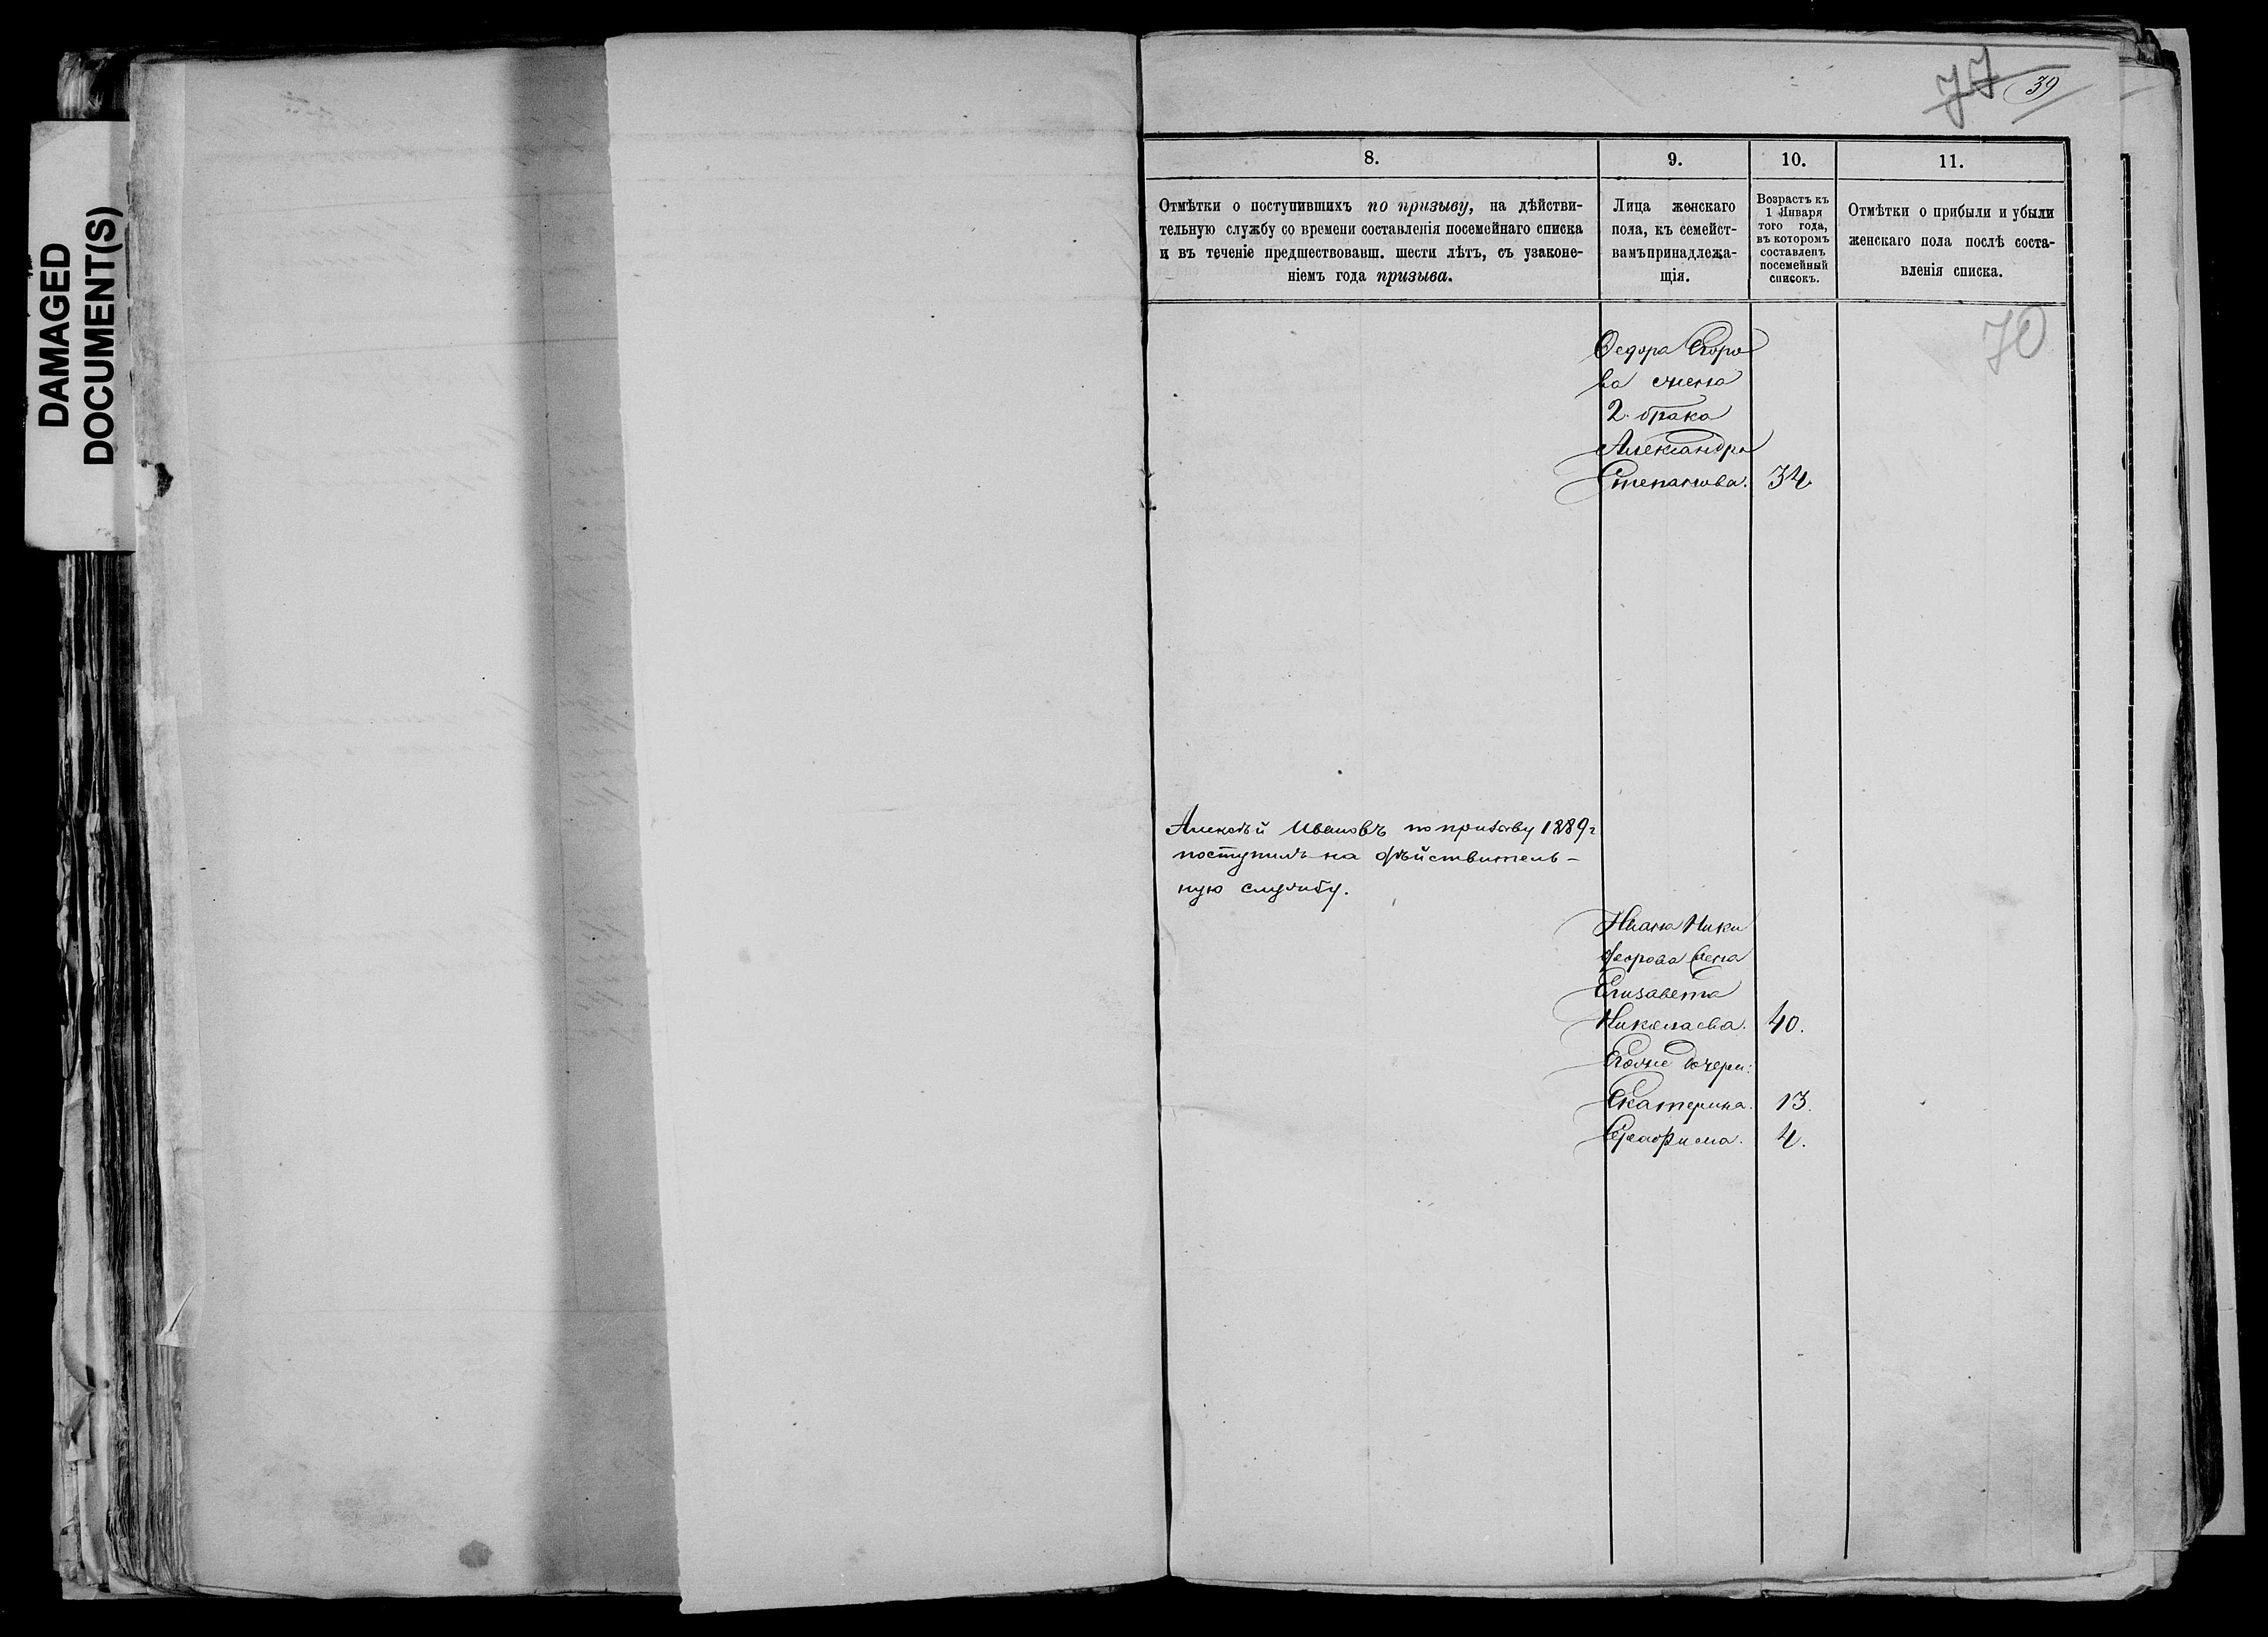 DAMAGED
DOCUMENT(S)
77 39
8.
9.
10.
11.
Отмѣтки о поступившихъ по призыву, на дѣйстви-
тельную службу со времени составленія посемейнаго списка
и въ теченіе предшествовавш. шести лѣтъ, съ узаконе-
ніемъ года призыва.
Лица женскаго
пола, къ семейст-
вамъ принадлежа-
щія.
Возрастъ къ
1 Января
того года,
въ которомъ
составленъ
посемейный
списокъ.
Отмѣтки о прибыли и убыли
женскаго пола послѣ соста-
вленія списка.
70
Ѳедора Егоро
ва жена
2. брака
Александра
Степанова. 34
Алексѣй Ивановъ по призыву 1889 г
поступилъ на дѣйствитель-
ную службу.
Ивана Ники
форова жена
Елизавета
Николаева. 40.
Егоже дочери:
Екатерина. 13.
Серафима. 4.